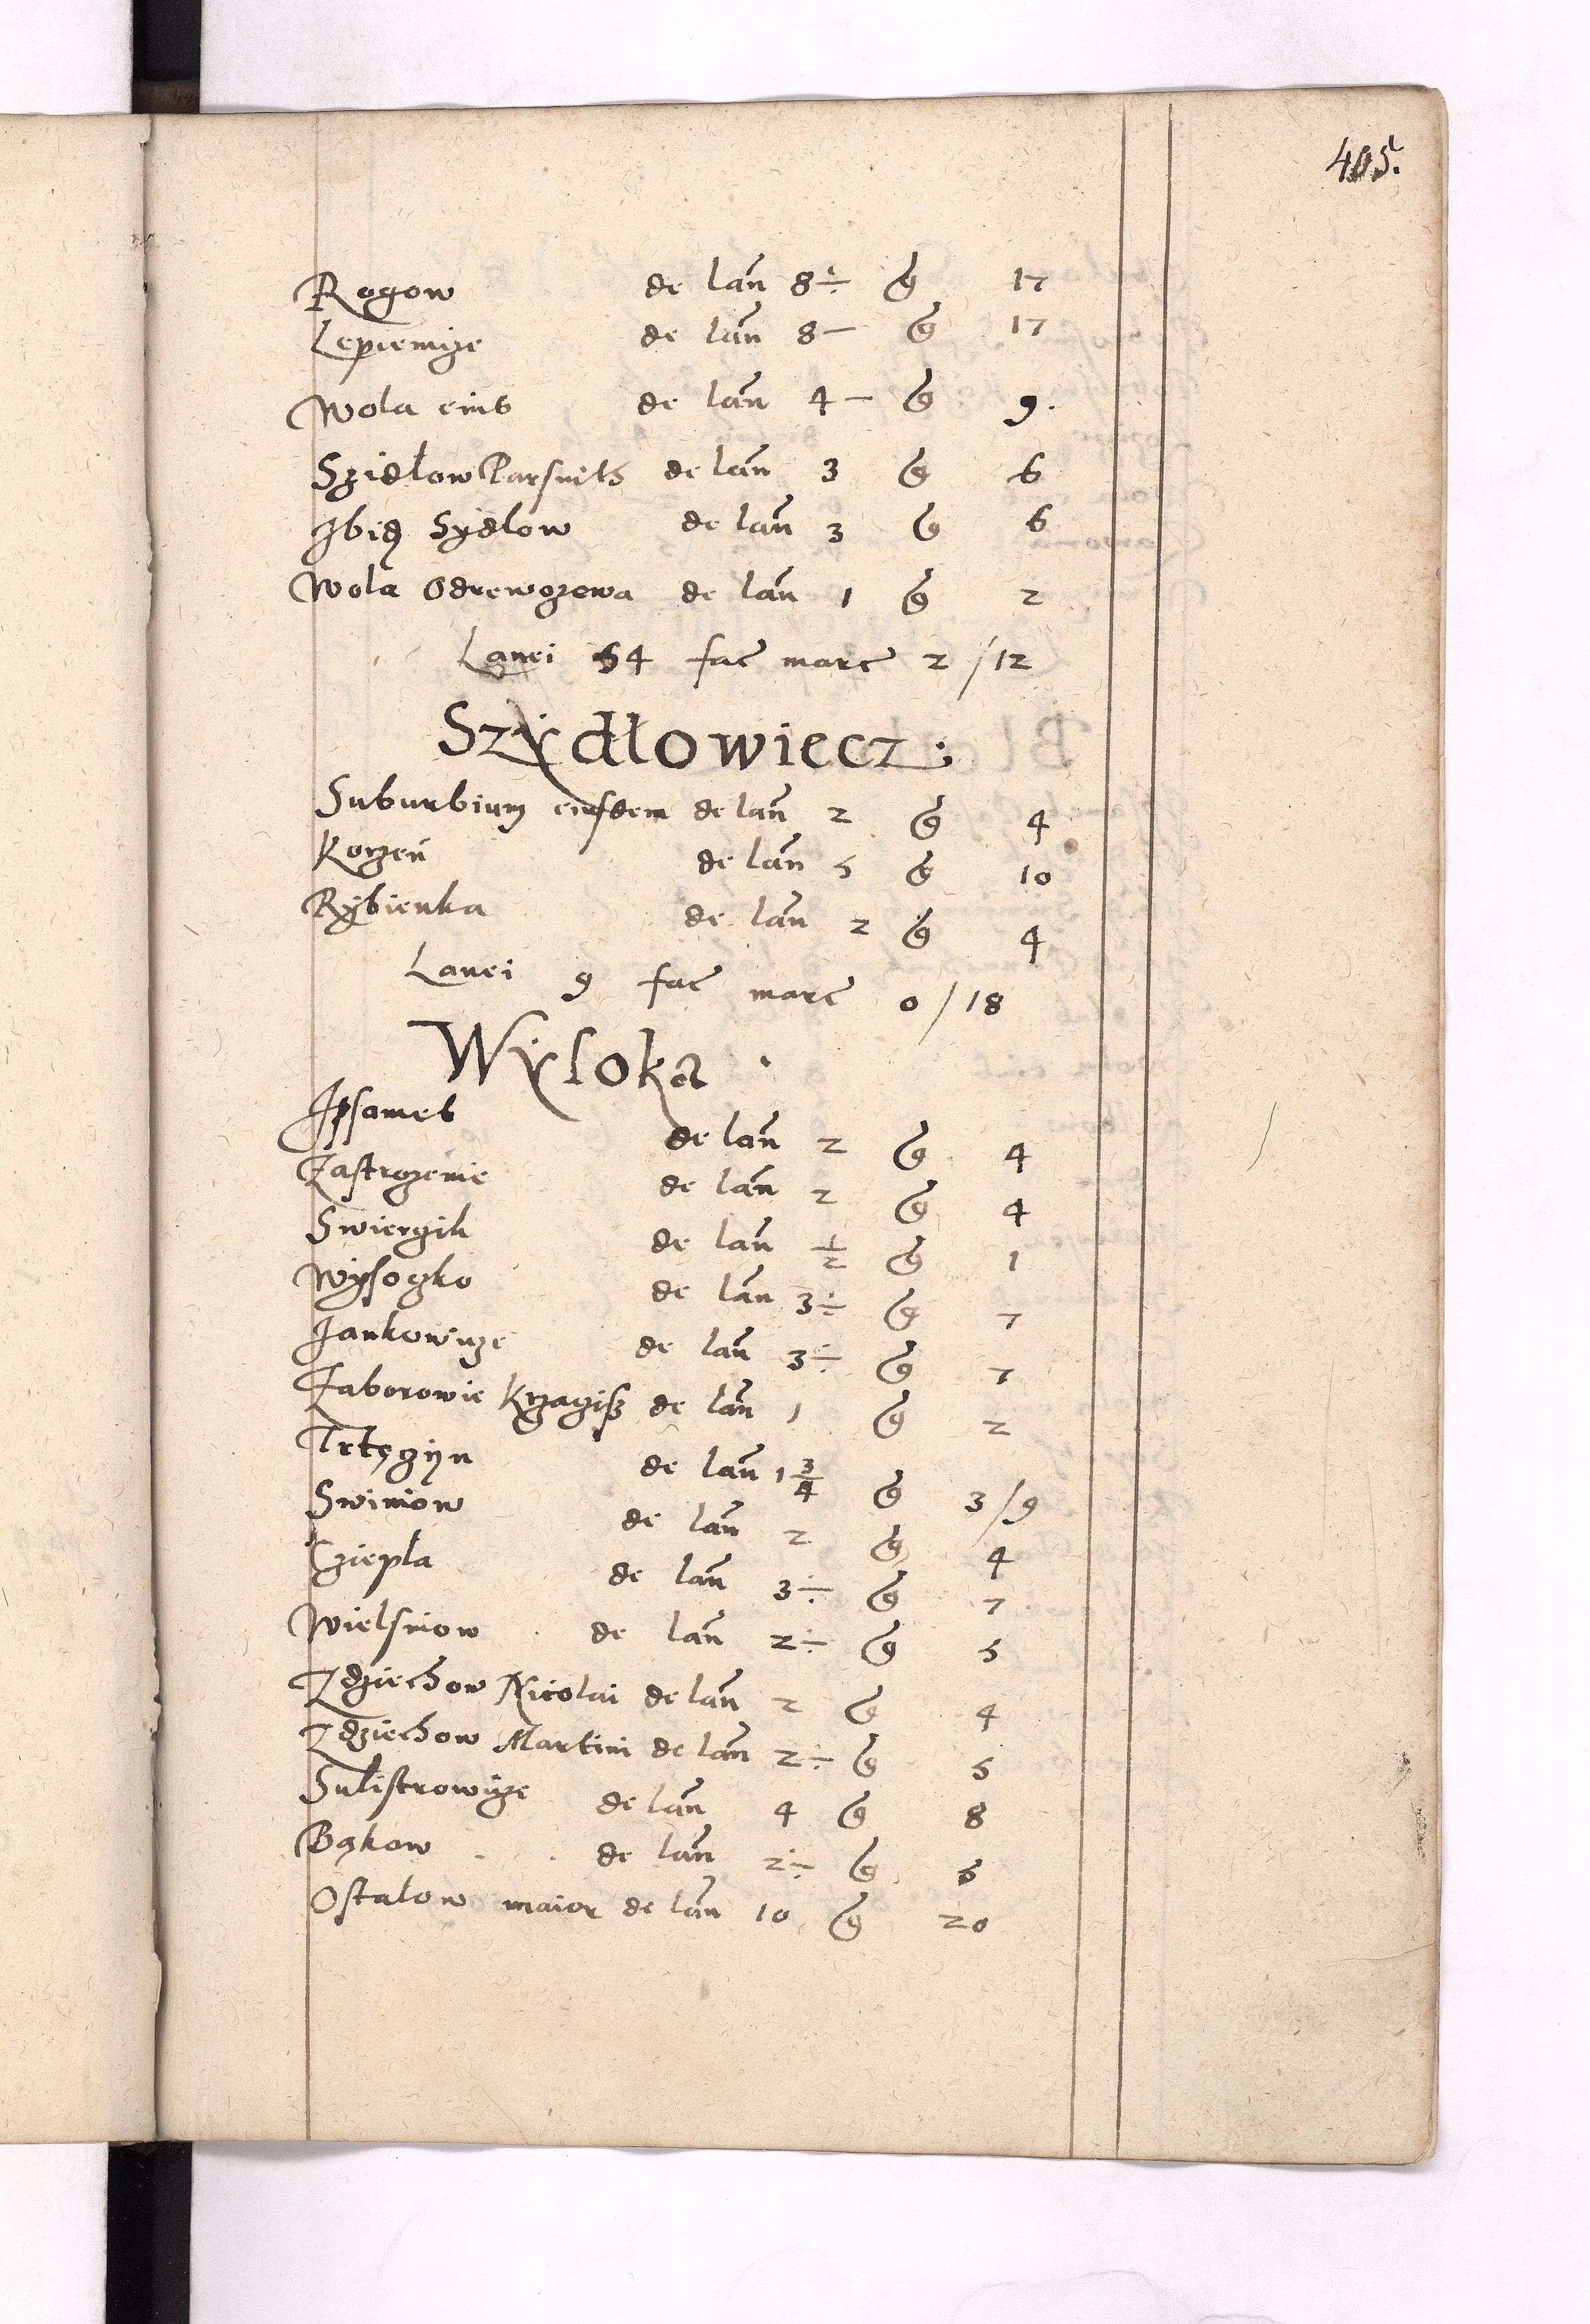 405.
Rogow de lan 8÷ g 17
Lepiemize de lan 8— g 17
Wola eius de lan 4— g 9.
Szidlow Parsuits de lan 3 g 6
Ibid Sydlow de lan 3 g 6
Wola Odrewozowa de lan 1 g 2
Lanei 54 fac marc 2/12
Szydłowiecz:
Suburbium eiusdem de lan 2 g 4
Korzen de lan 5 g 10
Rybienka de lan 2 g 4
Lanei 9 fac marc 0/18
Wysoka
Ipsamet de lan 2 g 4
Zastrozenie de lan 2 g 4
Swiergik de lan 1/2 g 1
Wysoczko de lan 3÷ g 7
Jankowize de lan 3÷ g 7
Zaborowie de lan 1 g 2
de lan 1 3/4 g 3/9
Swiniow de lan 2 g 4
Cziepla de lan 3÷ g 7
de lan 2÷ g 5
Zdziechow Nicolai de lan 2 g 4
Zdziechow Martini de lan 2÷ g 5
Sulistrowize de lan 4 g 8
Bąkow de lan 2÷ g 5
Ostalow maior de lan 10 g 20